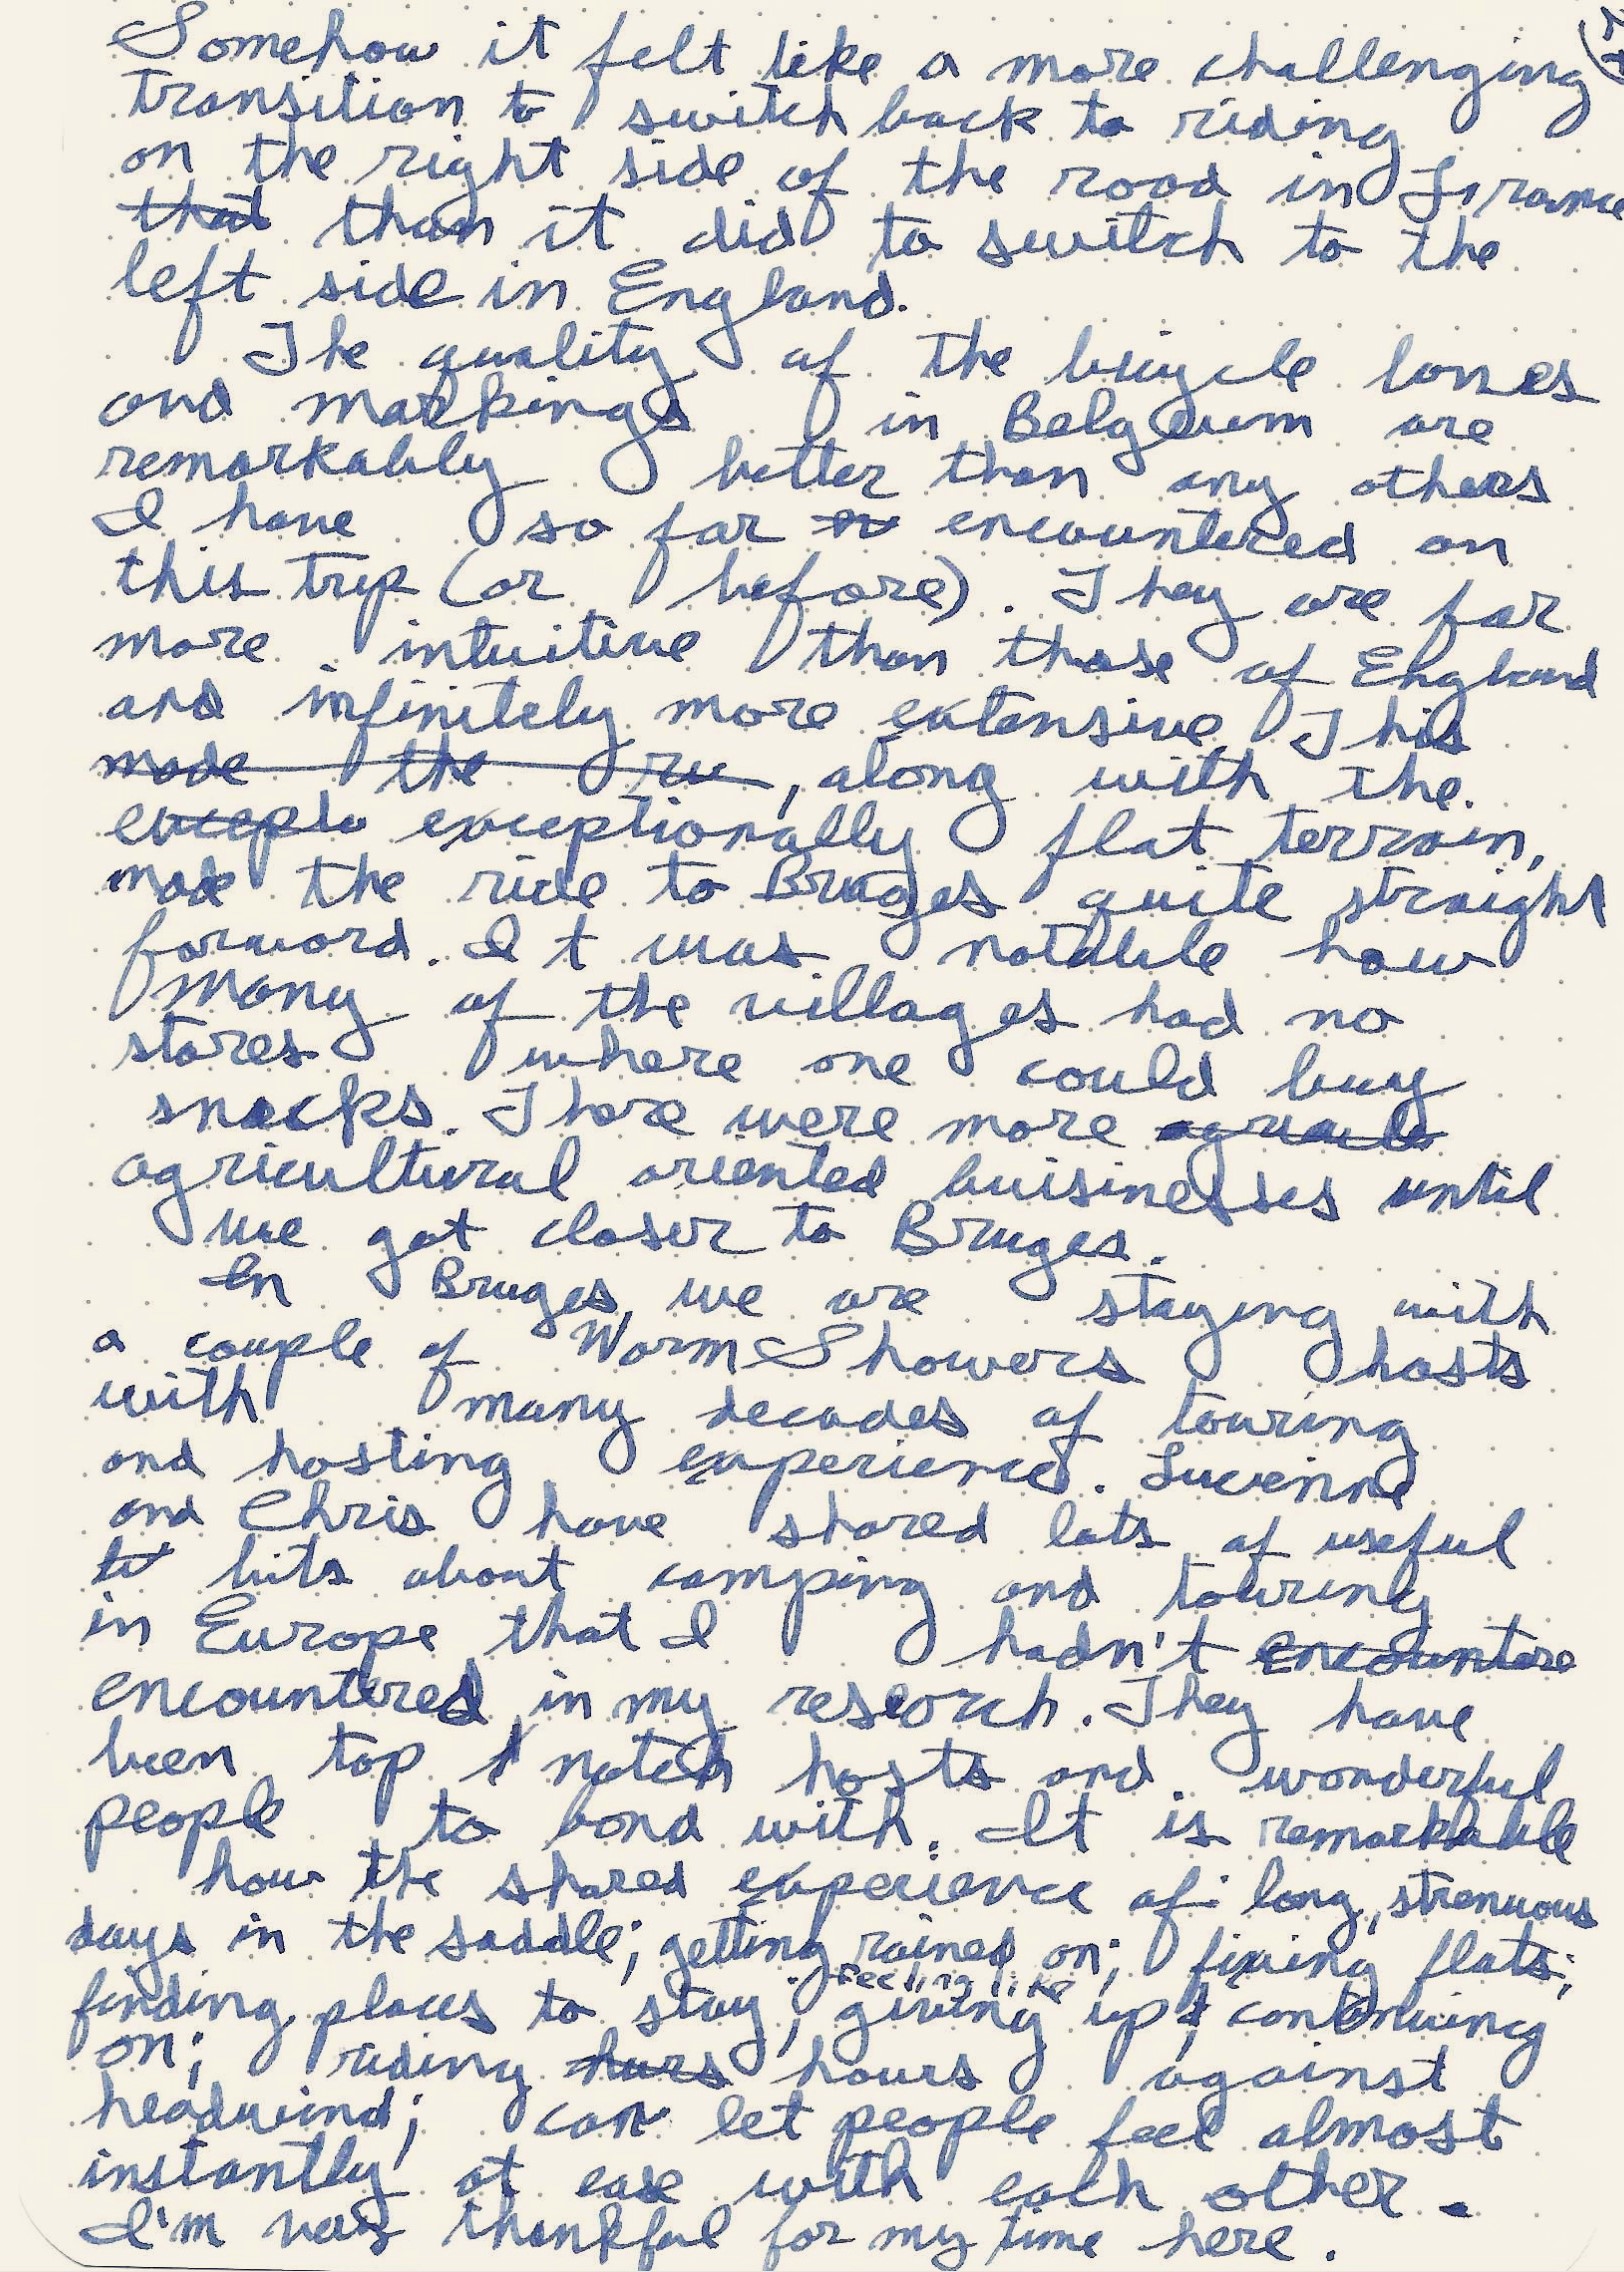 Somehow it felt like a more challenging
transition to switch back to riding
on the right side of the road in France
~~that~~ than it did to switch to the
left side in England.
The quality of the bicycle lanes
and markings in Belgium are
remarkably better than any others
I have so far ~~en~~ encountered on
this trip (or before). They are far
more intuitive than those of England
and infinitely more extensive. This
~~made the ru~~, along with the
~~excepto~~ exceptionally flat terrain,
made the ride to Bruges quite straight
forward. It was notable how
many of the villages had no
stores where one could buy
snacks. There were more
agricultural oriented buisinesses until
we got closer to Bruges.
In Bruges, we are staying with
a couple of WarmShowers hosts
with many decades of touring
and hosting experience. Lucienne
and Chris have shared lots of useful
bits about camping and touring
in Europe that I hadn't ~~encountere~~
encountered in my research. They have
been top notch hosts and wonderful
people to bond with. It is remarkable
how the shared experience of: long, strenuous
days in the saddle; getting rained on; fixing flats;
feeling like
finding places to stay; giving up & continuing
on; riding ~~hurs~~ hours against
headwind; can let people feel almost
instantly at ease with each other.
I'm very thankful for my time here.